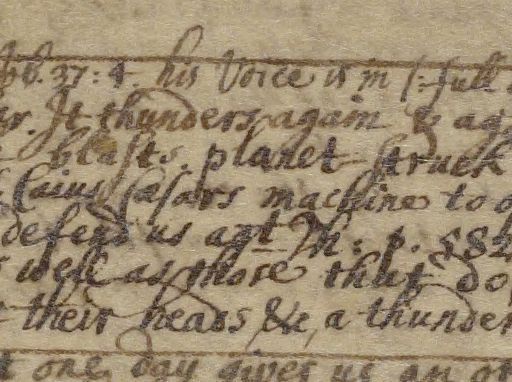 bb. 37: 4. his Voice is in /: full
It thunders again & ag
blasts. planet-struck
Caius Cæsars machine to
defend us agt Th: p. 882
well as those that do
their heads &c, a thunder
one day gives us an